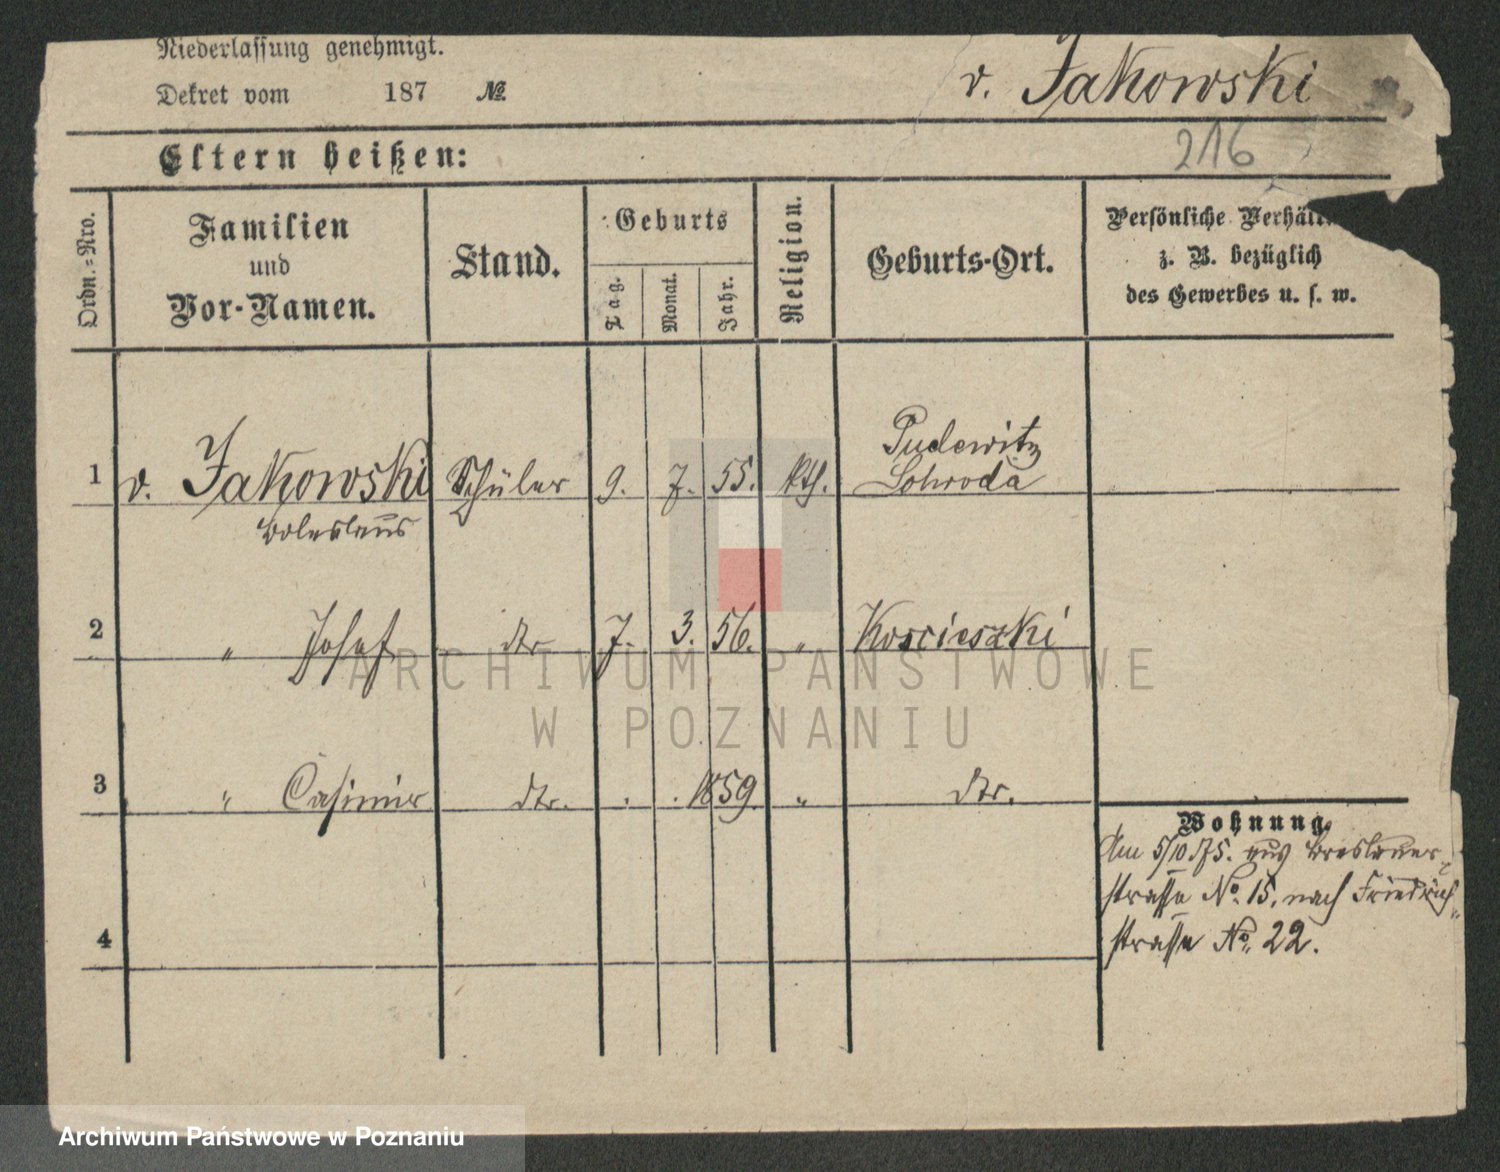 Niederlassung genehmigt.
Dekret vom 187 №
v. Jakowski
216
Eltern heißen:
Ordn.-Nro.
Familien
und
Vor-Namen.
Stand.
Geburts
Tag.
Monat.
Jahr.
Religion.
Geburts-Ort.
Persönliche
z. B. bezüglich
des Gewerbes u. s. w.
1 v. Jakowski Schüler 9. 7. 55. kth. Pudewitz
Boleslaus
2 " Josef dto 7. 3. 56. " Koscieszki
3 " Casimir dto. . . 1859 " dto.
4
Wohnung.
Am 5/10.75. aus Breslauer-
strasse No. 15. nach Friedrich-
strasse No. 22.
ARCHIWUM PAŃSTWOWE
W POZNANIU
Archiwum Państwowe w Poznaniu